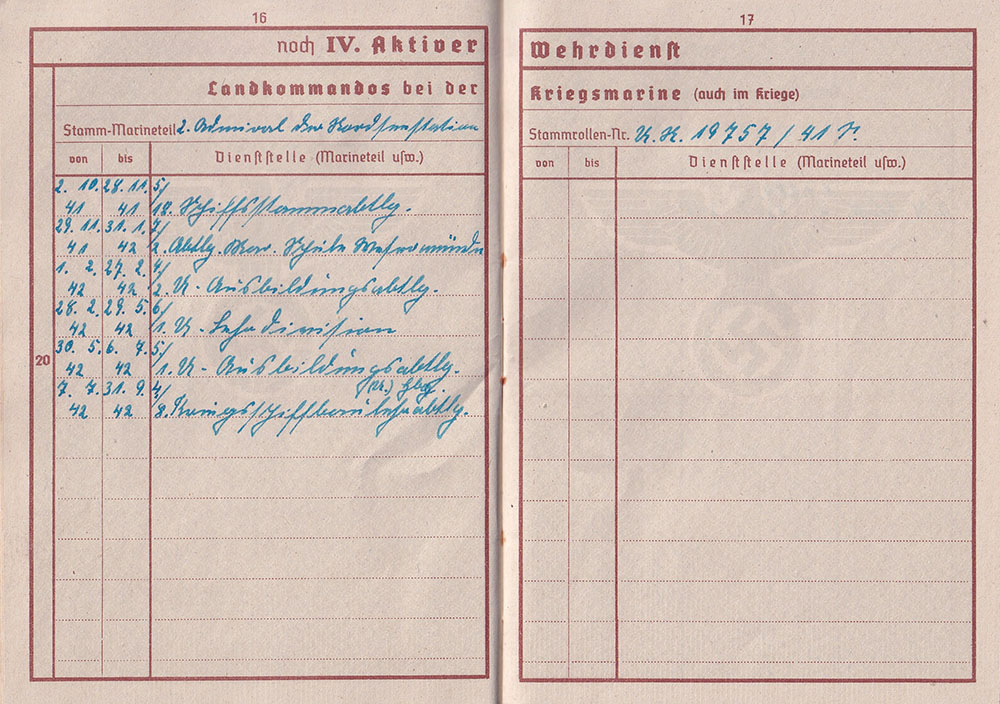 16
noch IV. Aktiver
Landkommandos bei der
Stamm-Marineteil 2. Admiral der Nordseestation
von bis Dienststelle (Marineteil usw.)
2. 10. 28. 11. 5/
41 41 /18. Schiffsstammabtlg.
29. 11. 31. 1. 7/
41 42 /2. Abtlg. Mar. Schule Wesermünde
1. 2. 27. 2. 4/
42 42 /2. U-Ausbildungsabtlg.
28. 2. 29. 5. 6/
42 42 /1. U-Lehrdivision
30. 5. 6. 7. 5/
20
42 42 /1. U-Ausbildungsabtlg.
7. 7. 31. 9. 4/ (U.) Hbg.
42 42 /8. Kriegsschiffbaulehrabtlg.
17
Wehrdienst
Kriegsmarine (auch im Kriege)
Stammrollen-Nr. 19757/41
von bis Dienststelle (Marineteil usw.)